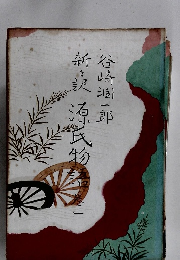 谷崎潤一郎
新訳 源氏物語 一